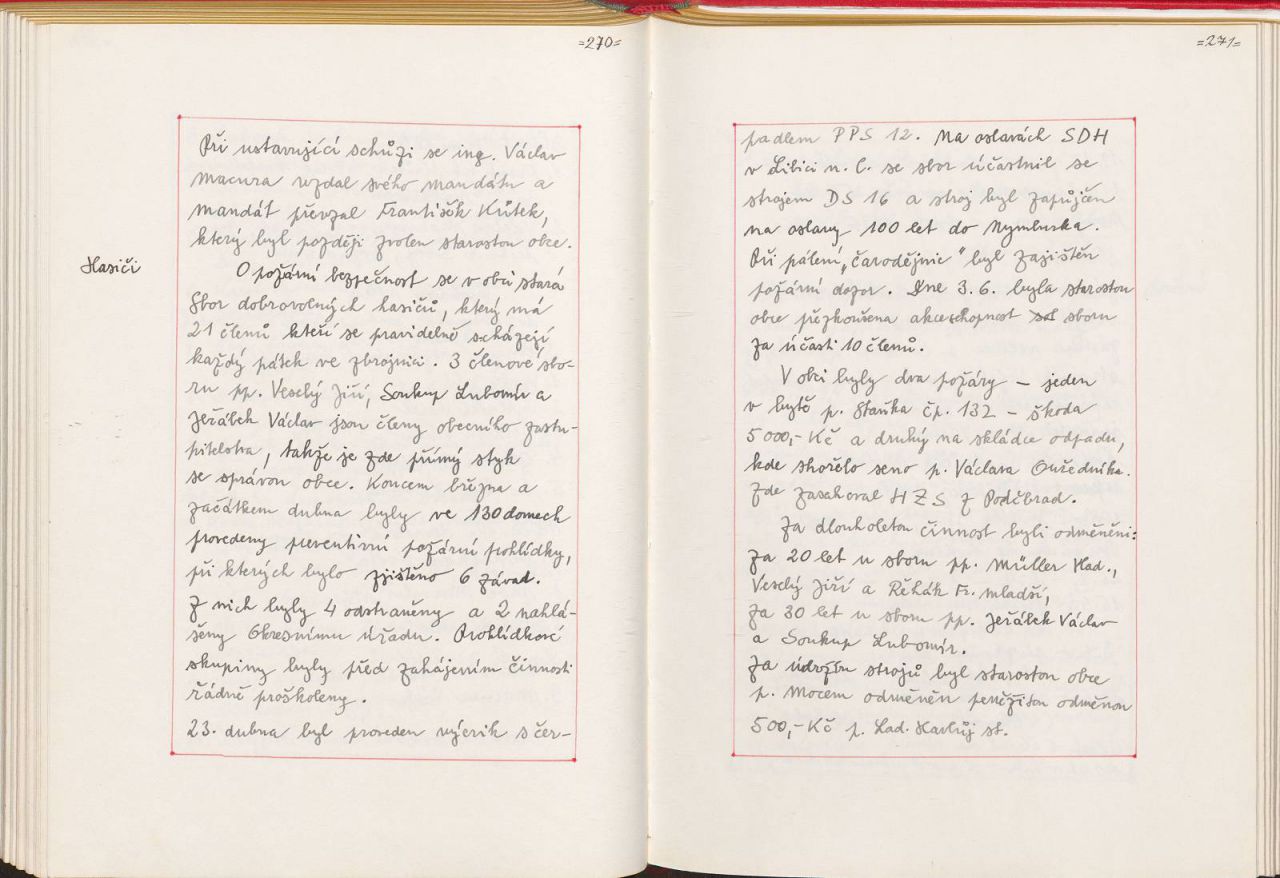 =270=
Při ustavující schůzi se ing. Václav
Macura vzdal svého mandátu a
mandát převzal František Kůtek,
který byl později zvolen starostou obce.
Hasiči
O požární bezpečnost se v obci stará
Sbor dobrovolných hasičů, který má
21 členů kteří se pravidelně scházejí
každý pátek ve zbrojnici. 3 členové sbo-
ru pp. Veselý Jiří, Soukup Lubomír a
Jeřábek Václav jsou členy obecního zastu-
pitelstva, takže je zde přímý styk
se správou obce. Koncem března a
začátkem dubna byly ve 130 domech
provedeny preventivní požární prohlídky,
při kterých bylo zjištěno 6 závad.
Z nich byly 4 odstraněny a 2 nahlá-
šeny Okresnímu úřadu. Prohlídkové
skupiny byly před zahájením činnosti
řádně proškoleny.
23. dubna byl proveden výcvik s čer-
=271=
padlem PPS 12. Na oslavách SDH
v Libici n. C. se sbor účastnil se
strojem DS 16 a stroj byl zapůjčen
na oslavy 100 let do Nymburka.
Při pálení „čarodějnic" byl zajištěn
požární dozor. Dne 3.6. byla starostou
obce přezkoušena akceschopnost sboru
za účasti 10 členů.
V obci byly dva požáry – jeden
v bytě p. Staňka čp. 132 – škoda
5 000,- Kč a druhý na skládce odpadu,
kde shořelo seno p. Václava Ouředníka.
Zde zasahoval HZS z Poděbrad.
Za dlouholetou činnost byli odměněni:
za 20 let u sboru pp. Müller Vlad.,
Veselý Jiří a Řehák Fr. mladší,
za 30 let u sboru pp. Jeřábek Václav
a Soukup Lubomír.
Za údržbu strojů byl starostou obce
p. Mocem odměněn peněžitou odměnou
500,- Kč p. Lad. Havlůj st.